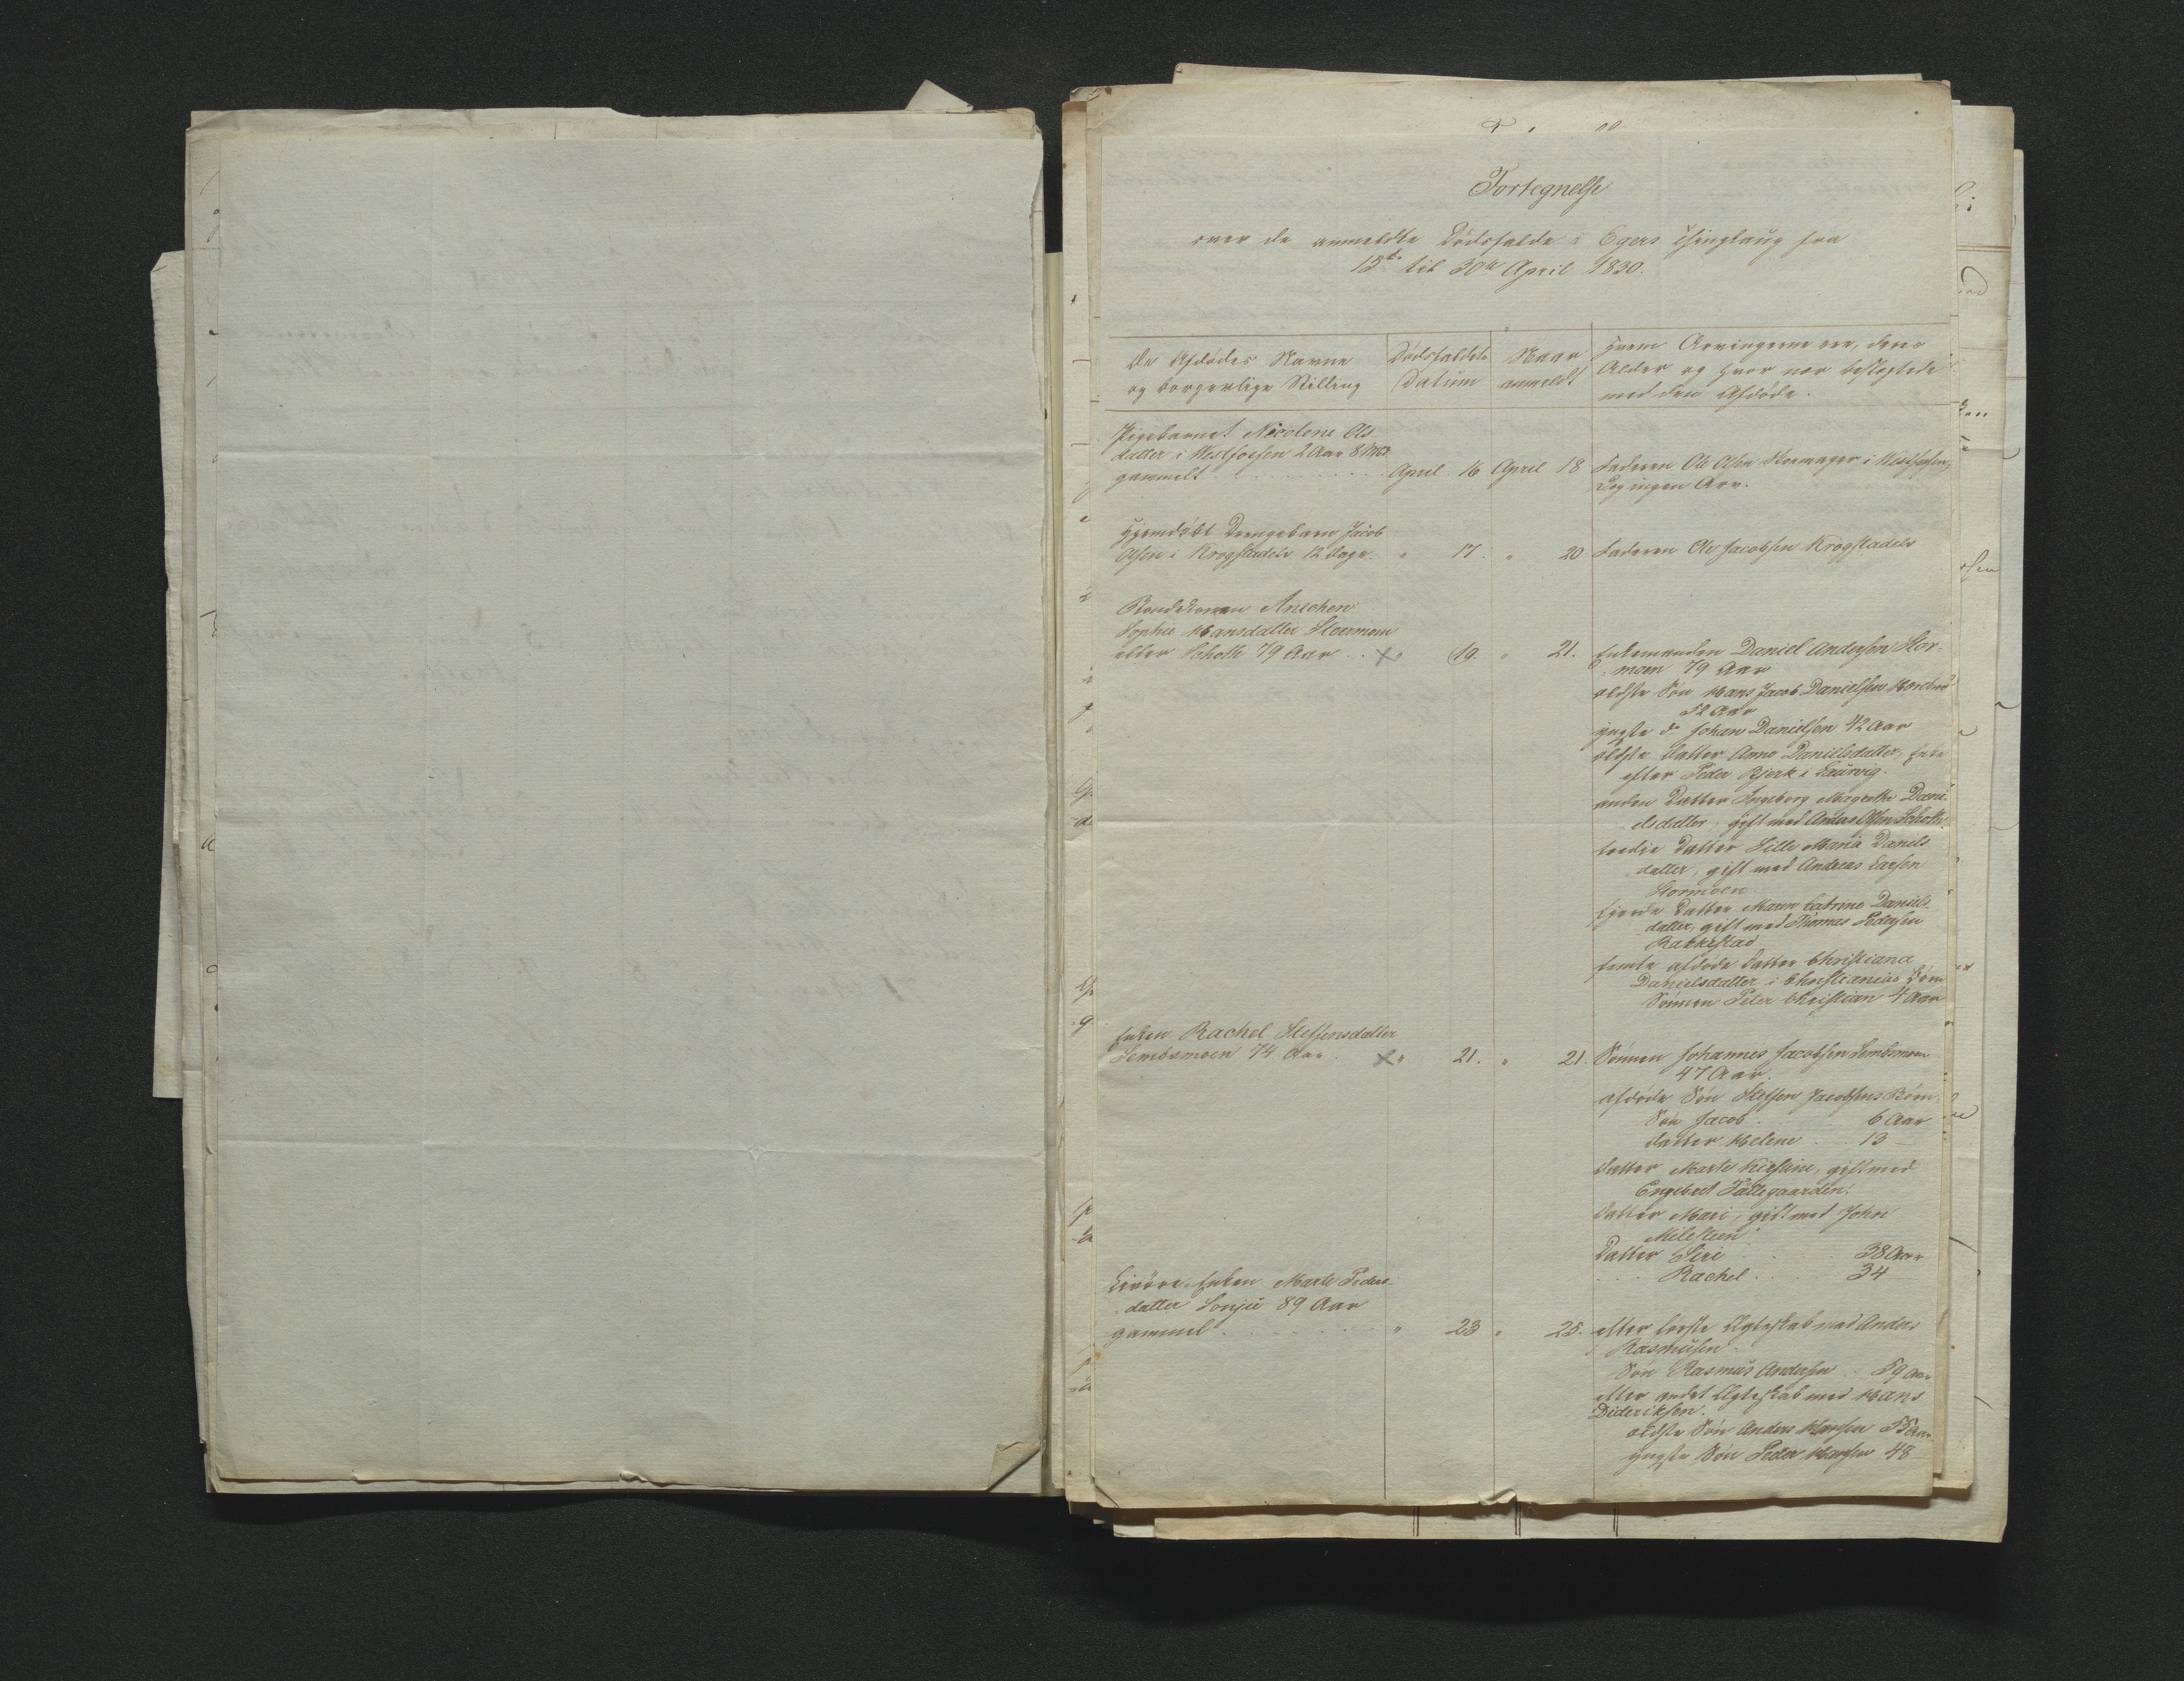 Fortegnelse
over de anmeldte Dødsfalde i Egers Thinglaug fra
15de til 30te April 1830.
De Afdødes Navne
og borgerlige Stilling
Dødsfaldets
Datum
Naar
anmeldt
Hvem Arvingerne ere, deres
Alder og hvor nær beslegtede
med den Afdøde.
Pigebarnet Nicolene Ols
datter i Westfosen 2 Aar 8 Mdr
gammelt . . . April 16 April 18
Faderen Ole Olsen Skomager i Westfosen,
Dog ingen Arv.
Hjemdøbt Drengebarn Jacob
Olsen i Krogstadelv 12 Dage. " 17. " 20
Faderen Ole Jacobsen Krogstadelv
Bondekonen Anichen
Sophie Hansdatter Stormoen
eller Schoth 79 Aar . . " 19. " 21.
Enkemanden Daniel Andersen Stor-
moen 79 Aar
eldste Søn Hans Jacob Danielsen
52 Aar
yngste do Johan Danielsen 42 Aar
eldste Datter Anne Danielsdatter, Enke
efter Peder Bjerk i Laurvig.
anden Datter Ingeborg Magrethe Dani-
elsdatter, gift med Anders Olsen Schoth.
tredie Datter Sille Maria Daniels
datter, gift med Andreas Larsen
Stormoen
fjerde Datter Maren Catrine Daniels
datter, gift med Thomas Pedersen
femte afdøde Datter Christiana
Danielsdatter i Christianias Børn
Sønnen Peter Christian 4 Aar
Enken Rachel Steffensdatter
Sembsmoen 74 Aar. " 21. " 21.
Sønnen Johannes Jacobsen Sembsmoen
47 Aar.
afdøde Søn Steffen Jacobsens Børn.
Søn Jacob . . 6 Aar
Datter Helene . . 13 —
Datter Marte Kirstine, gift med
Engebret
Datter Mari, gift med John
Milesteen
Datter Siri . . 38 Aar
. . . Rachel . . 34
Enken Marte Peders-
datter Lonjü 89 Aar
gammel . . . " 23 " 25.
efter første Ægteskab med Anders
Rasmusen
Søn Rasmus Andersen . 59 Aar
efter andet Ægteskab med Hans
Dideriksen.
eldste Søn Anders Hansen
yngste Søn Peder Hansen 48